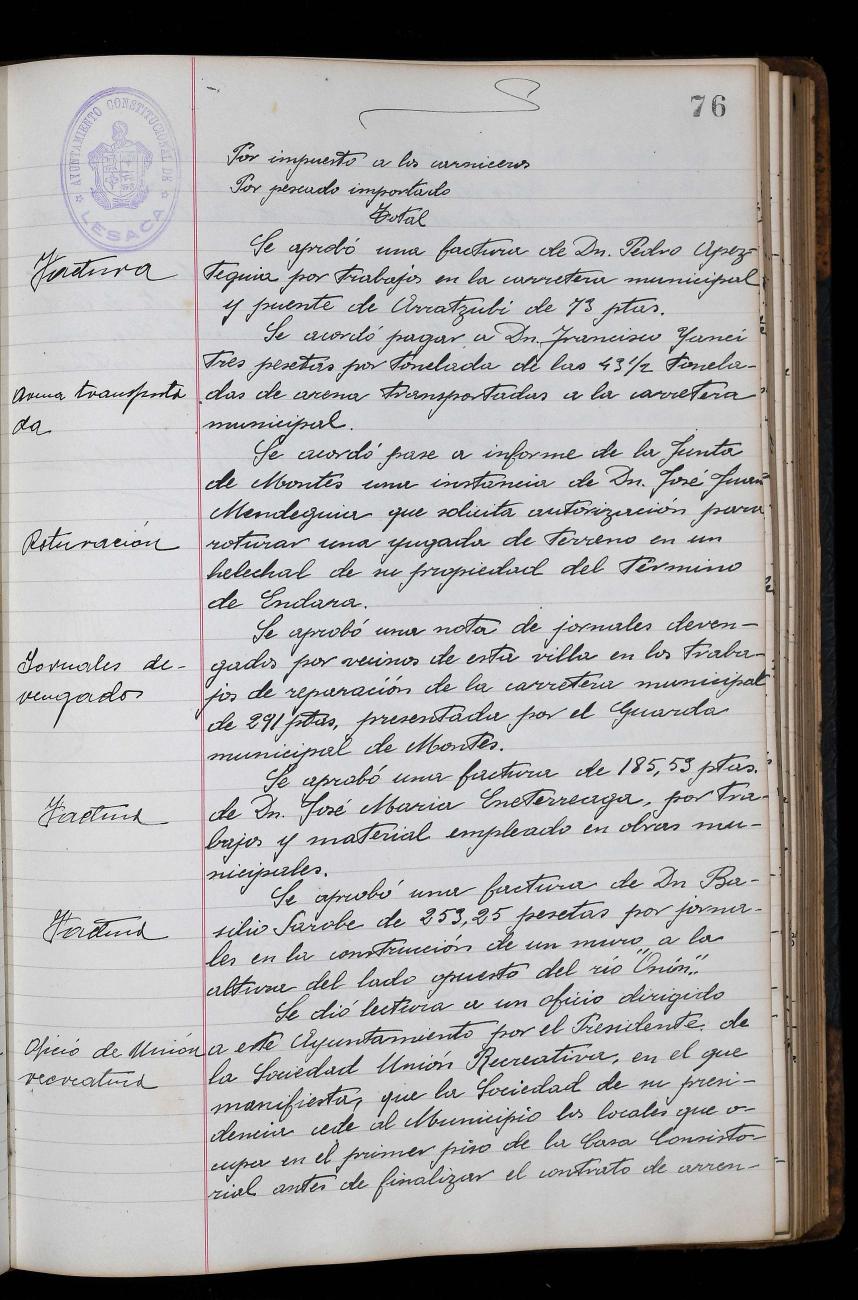 76
AYUNTAMIENTO CONSTITUCIONAL DE
LESACA
Por impuesto a los carniceros
Por pescado importado
Total
Factura
Se aprobó una factura de Dn. Pedro Apez-
teguia por trabajos en la carretera municipal
y puente de Arratzubi de 73 ptas.
Se acordó pagar a Dn. Francisco Yanci
tres pesetas por tonelada de las 43 1/2 tonela-
Arena transporta
da
das de arena transportadas a la carretera
municipal.
Se acordó pase a informe de la Junta
de Montes una instancia de Dn. José Juan
Mendeguia que solicita autorización para
Roturación
roturar una yugada de terreno en un
helechal de su propiedad del término
de Endara.
Se aprobó una nota de jornales deven-
Jornales de-
vengados
gados por vecinos de esta villa en los traba-
jos de reparación de la carretera municipal
de 291 ptas, presentada por el Guarda
municipal de Montes.
Se aprobó una factura de 185,53 ptas.
Factura
de Dn. José Maria Eneterreaga, por tra-
bajos y material empleado en obras mu-
nicipales.
Se aprobó una factura de Dn Ba-
Factura
silio Sarobe de 253,25 pesetas por jorna-
les en la construcción de un muro a la
altura del lado opuesto del río "Onín".
Se dió lectura a un oficio dirigido
Oficio de Unión
recreativa
a este Ayuntamiento por el Presidente de
la Sociedad Unión Recreativa, en el que
manifiesta, que la Sociedad de su presi-
dencia cede al Municipio los locales que o-
cupa en el primer piso de la Casa Consisto-
rial antes de finalizar el contrato de arren-